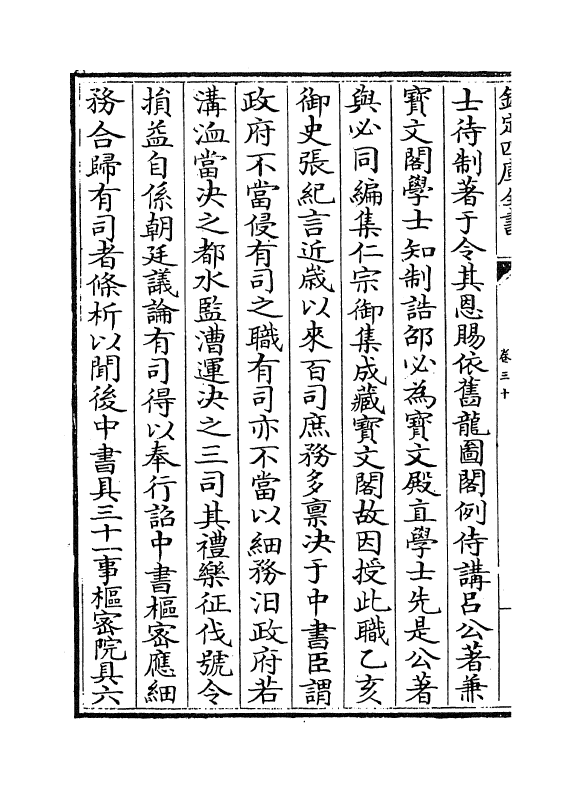 欽定四庫全書
卷三十
士待制著于令其恩賜依舊龍圖閣例侍講吕公著兼
寶文閣學士知制誥邵必為寶文殿直學士先是公著
與必同編集仁宗御集成藏寶文閣故因授此職乙亥
御史張紀言近歲以來百司庶務多禀決于中書臣謂
政府不當侵有司之職有司亦不當以細務汨政府若
溝洫當决之都水監漕運决之三司其禮樂征伐號令
損益自係朝廷議論有司得以奉行詔中書樞密應細
務合歸有司者條析以聞後中書具三十一事樞密院具六